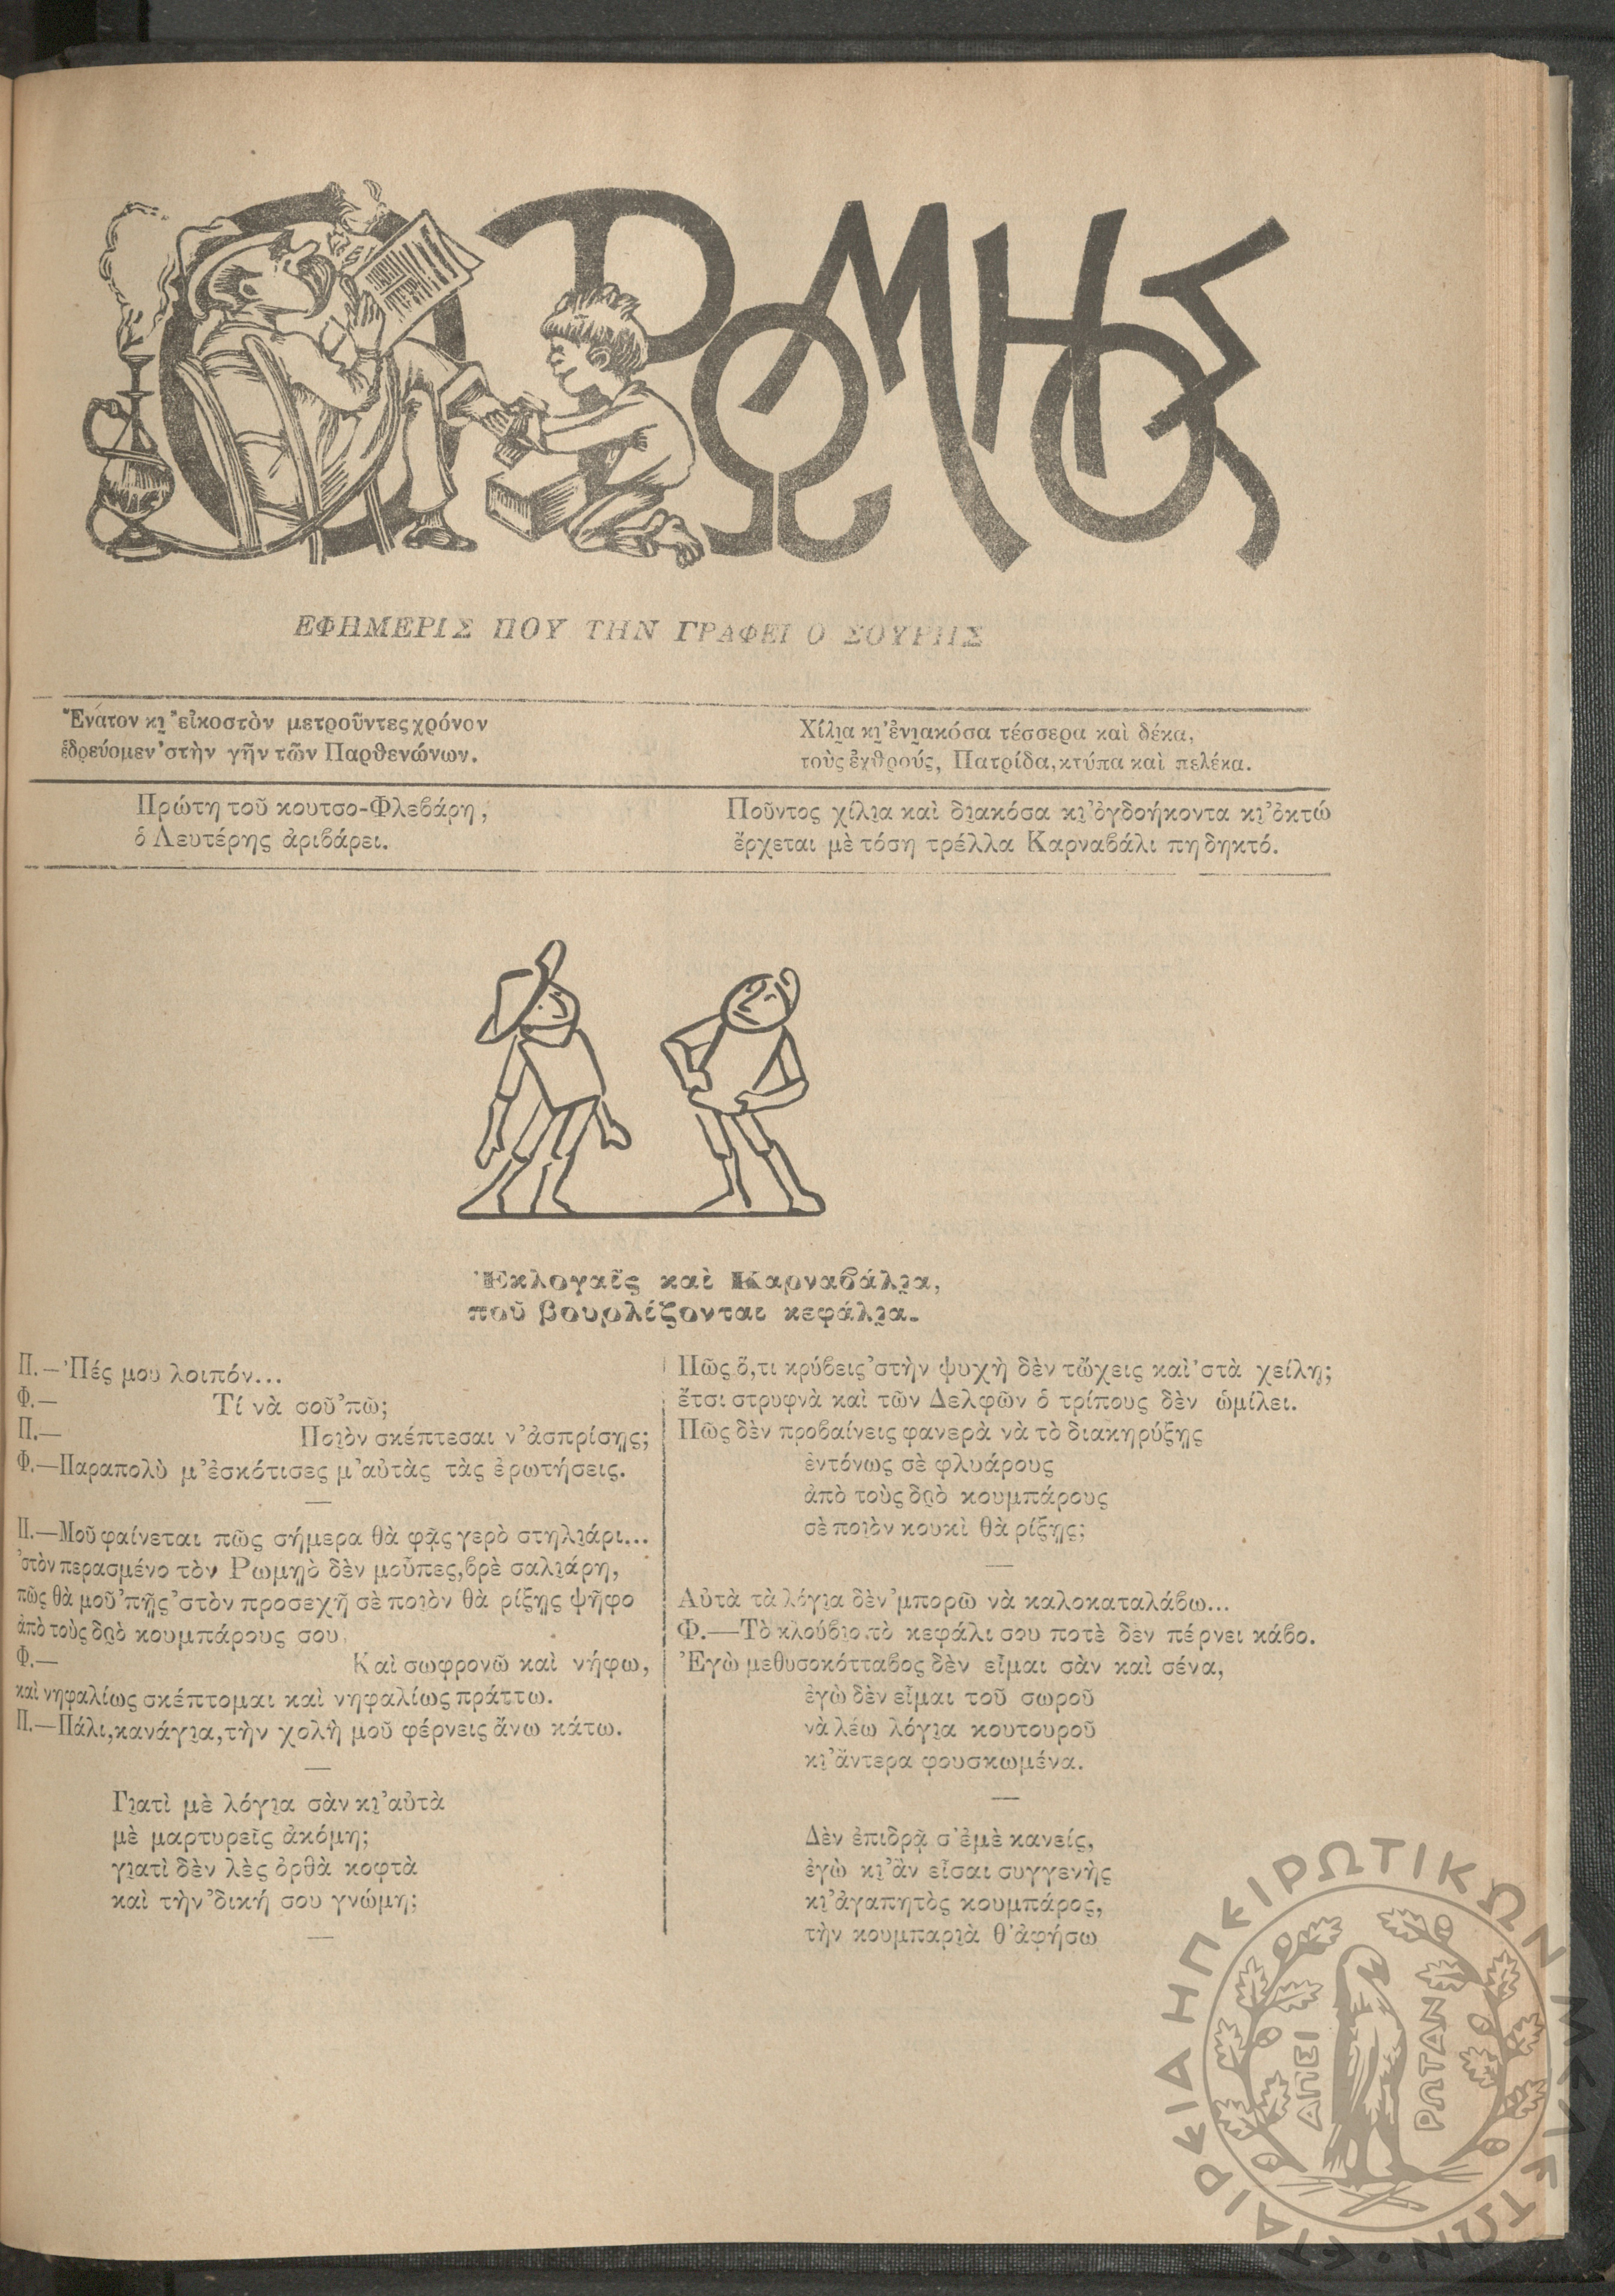 Ο ΡΩΜΗΟΣ
ΕΦΗΜΕΡΙΣ ΠΟΥ ΤΗΝ ΓΡΑΦΕΙ Ο ΣΟΥΡΗΣ
Ἔνατον κι̯ ’εἰκοστὸν μετροῦντες χρόνον
ἑδρεύομεν ’στὴν γῆν τῶν Παρθενώνων.
Χίλι̯α κι̯’ ἐνι̯ακόσα τέσσερα καὶ δέκα,
τοὺς ἐχθρούς, Πατρίδα, κτύπα καὶ πελέκα.
Πρώτη τοῦ κουτσο-Φλεβάρη,
ὁ Λευτέρης ἀριβάρει.
Ποῦντος χίλι̯α καὶ δι̯ακόσα κι̯’ ὀγδοήκοντα κι̯’ ὀκτώ
ἔρχεται μὲ τόση τρέλλα Καρναβάλι πηδηκτό.
Ἐκλογαῖς καὶ Καρναβάλι̯α,
ποῦ βουρλίζονται κεφάλι̯α.
Π.—Πές μου λοιπόν...
Φ.— Τί νὰ σοῦ ’πῶ;
Π.— Ποι̯ὸν σκέπτεσαι ν’ ἀσπρίσῃς;
Φ.—Παραπολὺ μ’ ἐσκότισες μ’ αὐτὰς τὰς ἐρωτήσεις.
—
Π.—Μοῦ φαίνεται πῶς σήμερα θὰ φᾷς γερὸ στηλι̯άρι...
’στὸν περασμένο τὸν Ρωμηὸ δὲν μοὖπες, βρὲ σαλι̯άρη,
πῶς θὰ μοῦ ’πῇς ’στὸν προσεχῆ σὲ ποι̯ὸν θὰ ρίξῃς ψῆφο
ἀπὸ τοὺς δυ̯ὸ κουμπάρους σου.
Φ.— Καὶ σωφρονῶ καὶ νήφω,
καὶ νηφαλίως σκέπτομαι καὶ νηφαλίως πράττω.
Π.—Πάλι, κανάγι̯α, τὴν χολὴ μοῦ φέρνεις ἄνω κάτω.
—
Γι̯ατὶ μὲ λόγι̯α σὰν κι̯’ αὐτὰ
μὲ μαρτυρεῖς ἀκόμη;
γι̯ατὶ δὲν λὲς ὀρθὰ κοφτὰ
καὶ τὴν ’δική σου γνώμη;
—
Πῶς ὅ,τι κρύβεις ’στὴν ψυχὴ δὲν τὤχεις καὶ ’στὰ χείλη;
ἔτσι στρυφνὰ καὶ τῶν Δελφῶν ὁ τρίπους δὲν ὡμίλει.
Πῶς δὲν προβαίνεις φανερὰ νὰ τὸ διακηρύξῃς
ἐντόνως σὲ φλυάρους
ἀπὸ τοὺς δυ̯ὸ κουμπάρους
σὲ ποι̯ὸν κουκὶ θὰ ρίξῃς;
—
Αὐτὰ τὰ λόγι̯α δὲν ’μπορῶ νὰ καλοκαταλάβω...
Φ.—Τὸ κλούβι̯ο τὸ κεφάλι σου ποτὲ δὲν πέρνει κάβο.
Ἐγὼ μεθυσοκότταβος δὲν εἶμαι σὰν καὶ σένα,
ἐγὼ δὲν εἶμαι τοῦ σωροῦ
νὰ λέω λόγι̯α κουτουροῦ
κι̯’ ἄντερα φουσκωμένα.
—
Δὲν ἐπιδρᾷ σ’ ἐμὲ κανείς,
ἐγὼ κι̯’ ἂν εἶσαι συγγενὴς
κι̯’ ἀγαπητὸς κουμπάρος,
τὴν κουμπαρι̯ὰ θ’ ἀφήσω
ΕΤΑΙΡΕΙΑ ΗΠΕΙΡΩΤΙΚΩΝ ΜΕΛΕΤΩΝ
ΑΠΕΙ
ΡΩΤΑΝ